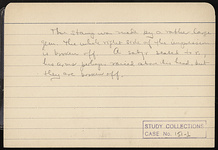 This stamp was made by a rather large
gem. The whole right side of the impression
is broken off. A satyr seated to l.
his arms perhaps raised above his head, but
they are broken off.
STUDY COLLECTIONS
CASE No. 151-